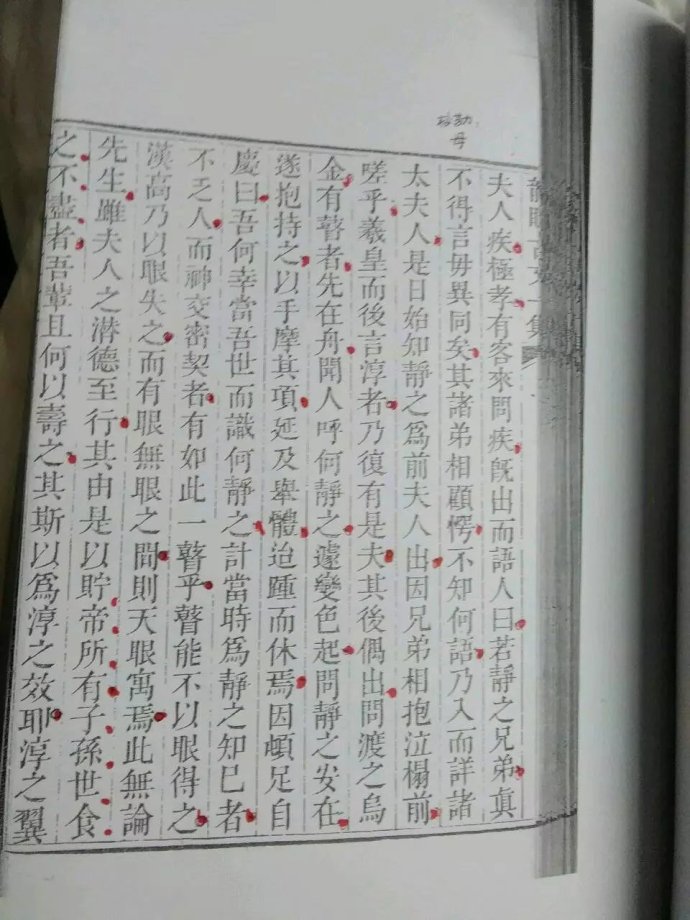 龍眠古文一集
夫人疾極孝有客來問疾旣出而語人曰若靜之兄弟眞
不得言毋異同矣其諸弟相顧愕不知何語乃入而詳諸
太夫人是日始知靜之爲前夫人出因兄弟相抱泣榻前
嗟乎羲皇而後言淳者乃復有是夫其後偶出問渡之烏
金有瞽者先在舟聞人呼何靜之遽變色起問靜之安在
遂抱持之以手摩其項延及舉體迨踵而休焉因頓足自
慶曰吾何幸當吾世而識何靜之計當時爲靜之知巳者
不乏人而神交密契者有如此一瞽乎瞽能不以眼得之
漢高乃以眼失之而有眼無眼之間則天眼寓焉此無論
先生雖夫人之潛德至行其由是以貯帝所有子孫世食
之不盡者吾輩且何以壽之其斯以爲淳之效耶淳之翼